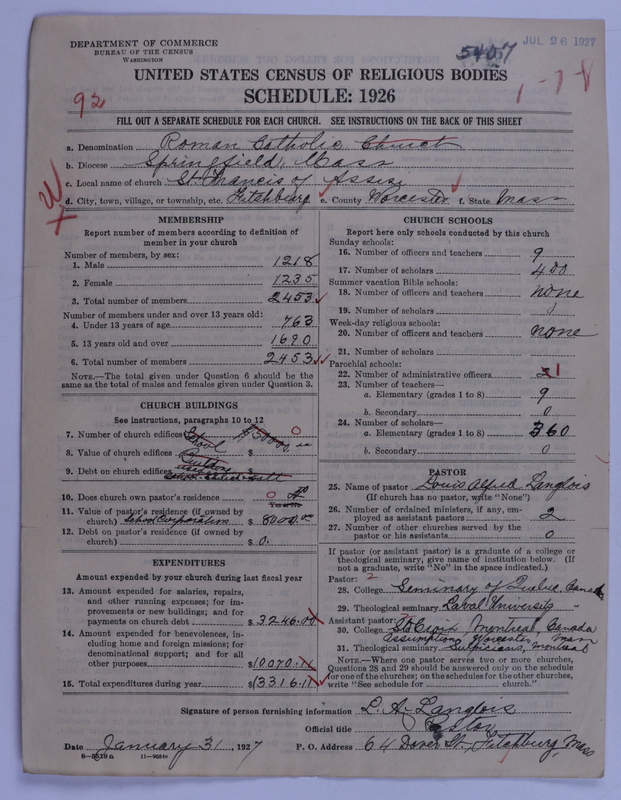 DEPARTMENT OF COMMERCE
BUREAU OF THE CENSUS
WASHINGTON
5407
JUL 26 1927
UNITED STATES CENSUS OF RELIGIOUS BODIES
SCHEDULE: 1926
92
FILL OUT A SEPARATE SCHEDULE FOR EACH CHURCH. SEE INSTRUCTIONS ON THE BACK OF THIS SHEET
a. Denomination Roman Catholic Church
b. Diocese Springfield, Mass
c. Local name of church St. Francis of Assisi
d. City, town, village, or township, etc. Fitchburg e. County Worcester f. State Mass
MEMBERSHIP
Report number of members according to definition of member in your church
Number of members, by sex:
1. Male 1218
2. Female 1235
3. Total number of members 2453
Number of members under and over 13 years old:
4. Under 13 years of age 763
5. 13 years old and over 1690
6. Total number of members 2453
NOTE.—The total given under Question 6 should be the
same as the total of males and females given under Question 3.
CHURCH BUILDINGS
See instructions, paragraphs 10 to 12
7. Number of church edifices School 0
8. Value of church edifices $
9. Debt on church edifices $
10. Does church own pastor's residence 0
11. Value of pastor's residence (if owned by
church) School Corporation $ 8000.00
12. Debt on pastor's residence (if owned by
church) $ 0.
EXPENDITURES
Amount expended by your church during last fiscal year
13. Amount expended for salaries, repairs,
and other running expenses; for im-
provements or new buildings; and for
payments on church debt $ 3246.00
14. Amount expended for benevolences, in-
cluding home and foreign missions; for
denominational support; and for all
other purposes 10070.
15. Total expenditures during year $ 13316.
CHURCH SCHOOLS
Report here only schools conducted by this church
Sunday schools:
16. Number of officers and teachers 9
17. Number of scholars 400
Summer vacation Bible schools:
18. Number of officers and teachers none
19. Number of scholars
Week-day religious schools:
20. Number of officers and teachers none
21. Number of scholars
Parochial schools:
22. Number of administrative officers 1
23. Number of teachers—
a. Elementary (grades 1 to 8) 9
b. Secondary 0
24. Number of scholars—
a. Elementary (grades 1 to 8) 360
b. Secondary 0
PASTOR
25. Name of pastor Louis Alfred Langlois
(If church has no pastor, write "None")
26. Number of ordained ministers, if any, em-
ployed as assistant pastors 2
27. Number of other churches served by the
pastor or his assistants 0
If pastor (or assistant pastor) is a graduate of a college or
theological seminary, give name of institution below. (If
not a graduate, write "No" in the space indicated.)
Pastor: 2
28. College Seminary of Quebec, Canada
29. Theological seminary Laval University "
Assistant pastor: 2
30. College Ste Croix Montreal, Canada
Assumption, Worcester, Mass
31. Theological seminary Sulpicians, Montreal
NOTE.—Where one pastor serves two or more churches,
Questions 28 and 29 should be answered only on the schedule
for one of the churches; on the schedules for the other churches,
write "See schedule for church."
Signature of person furnishing information L. A. Langlois
Official title Pastor
Date January 31, 1927 P. O. Address 64 Dover St., Fitchburg, Mass